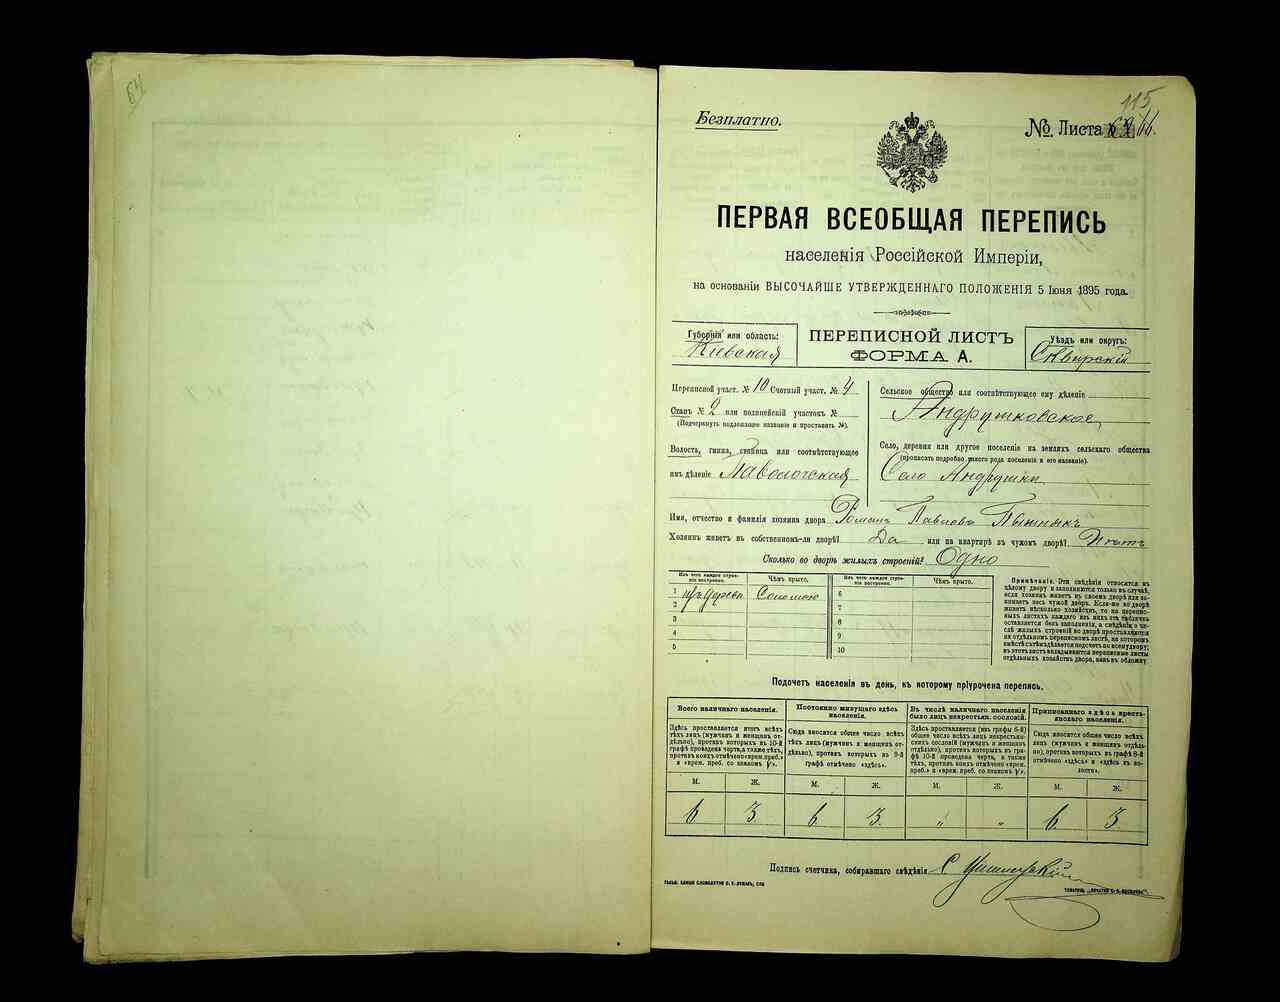 64
115
Безплатно.
№ Листа 66.
ПЕРВАЯ ВСЕОБЩАЯ ПЕРЕПИСЬ
населенія Россійской Имперіи,
на основаніи ВЫСОЧАЙШЕ УТВЕРЖДЕННАГО ПОЛОЖЕНІЯ 5 Іюня 1895 года.
Губернія или область:
Кіевская
ПЕРЕПИСНОЙ ЛИСТЪ
ФОРМА А.
Уѣздъ или округъ:
Сквирскій
Переписной участ. № 10 Счетный участ. № 4
Станъ № 2 или полицейскій участокъ №
(Подчеркнуть подлежащее названіе и проставить №).
Волость, гмина, станица или соотвѣтствующее
имъ дѣленіе Паволочская
Сельское общество или соотвѣтствующее ему дѣленіе
Андрушковское
Село, деревня или другое поселеніе на земляхъ сельскаго общества
(прописать подробно, какого рода поселеніе и его названіе).
Село Андрушки
Имя, отчество и фамилія хозяина двора Романъ Павловъ
Хозяинъ живетъ въ собственномъ-ли дворѣ? Да или на квартирѣ въ чужомъ дворѣ? Нѣтъ
Сколько во дворѣ жилыхъ строеній? Одно
Изъ чего каждое строеніе построено.
Чѣмъ крыто.
Изъ чего каждое строеніе построено.
Чѣмъ крыто.
1 изъ дерева Соломою 6
2 7
3 8
4 9
5 10
Примѣчаніе. Эти свѣдѣнія относятся къ
цѣлому двору и заполняются только въ случаѣ,
если хозяинъ живетъ въ своемъ дворѣ или занимаетъ
весь чужой дворъ. Если-же во дворѣ
живетъ нѣсколько хозяйствъ, то на переписныхъ
листахъ каждаго изъ нихъ эта табличка
оставляется безъ заполненія, а свѣдѣнія о числѣ
жилыхъ строеній во дворѣ проставляются
на отдѣльномъ переписномъ листѣ, на которомъ
вмѣстѣ съ тѣмъ дѣлается подсчетъ по всему двору;
въ этотъ листъ вкладываются переписные листы
отдѣльныхъ хозяйствъ двора, какъ въ обложку.
Подсчетъ населенія въ день, къ которому пріурочена перепись.
Всего наличнаго населенія.
Постоянно живущаго здѣсь
населенія.
Въ числѣ наличнаго населенія
было лицъ некрестьян. сословій.
Приписаннаго здѣсь крестьянскаго
населенія.
Здѣсь проставляется итогъ всѣхъ
тѣхъ лицъ (мужчинъ и женщинъ отдѣльно),
противъ которыхъ въ 10-й
графѣ проведена черта, а также тѣхъ,
противъ коихъ отмѣчено «врем. преб.»
и «врем. преб. со знакомъ V».
Сюда вносится общее число всѣхъ
тѣхъ лицъ (мужчинъ и женщинъ отдѣльно),
противъ которыхъ въ 9-й
графѣ отмѣчено «здѣсь».
Здѣсь проставляется (изъ графы 6-й)
общее число всѣхъ лицъ некрестьянскихъ
сословій (мужчинъ и женщинъ
отдѣльно), противъ которыхъ въ графѣ
10-й проведена черта, а также
тѣхъ, противъ коихъ отмѣчено «врем.
преб.» и «врем. преб. со знакомъ V».
Сюда вносится общее число всѣхъ
лицъ (мужчинъ и женщинъ отдѣльно),
противъ которыхъ въ графѣ 8-й
отмѣчено «здѣсь» и «здѣсь въ волости».
М. Ж. М. Ж. М. Ж. М. Ж.
6 3 6 3 „ „ 6 3
Подпись счетчика, собиравшаго свѣдѣнія С.